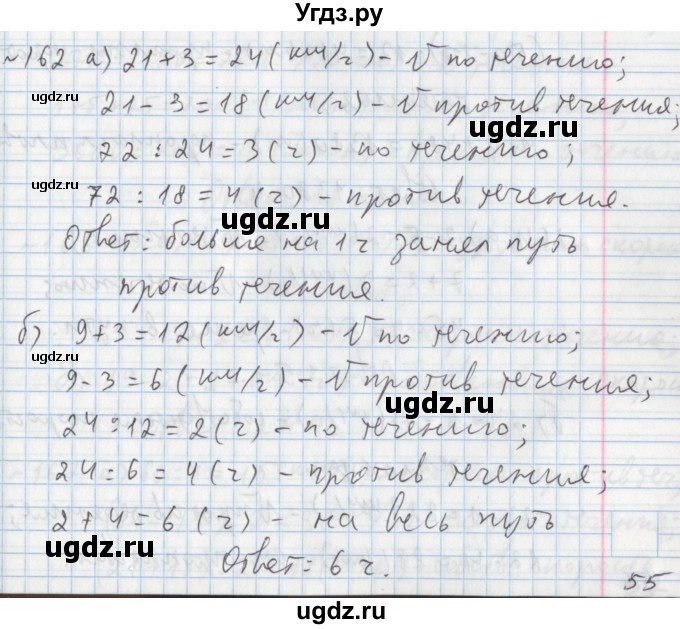 Угдз.ру
№162 а) 21+3=24(км/ч) - V по течению;
21-3=18(км/ч) - V против течения;
72:24=3(ч) - по течению;
72:18=4(ч) - против течения.
Ответ: больше на 1ч занял путь
против течения.
б) 9+3=12(км/ч) - V по течению;
9-3=6(км/ч) - V против течения;
24:12=2(ч) - по течению;
24:6=4(ч) - против течения;
2+4=6(ч) - на весь путь
Ответ: 6 ч.
55
ugdz.ru
ugdz.ru
ugdz.ru
ugdz.ru
ugdz.ru
ugdz.ru
ugdz.ru
ugdz.ru
ugdz.ru
ugdz.ru
ugdz.ru
ugdz.ru
ugdz.ru